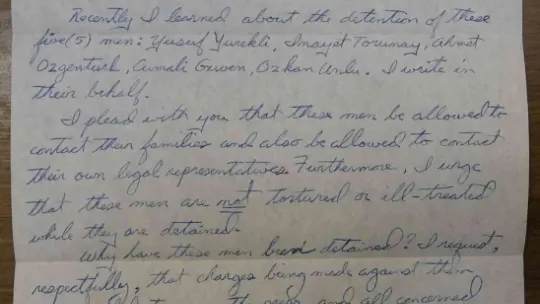 Recently I learned about the detention of these
five (5) men: Yusuf Yurekli, Imayet Torunay, Ahmet
Ozgenturk, Cumali Guven, Ozkan Unlu. I write in
their behalf.
I plead with you that these men be allowed to
contact their families and also be allowed to contact
their own legal representatives. Furthermore, I urge
that these men are not tortured or ill-treated
while they are detained.
Why have these men been detained? I request,
respectfully, that charges being made against them
and all concerned